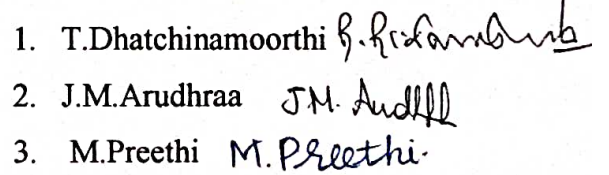 1. T.Dhatchinamoorthi
2. J.M.Arudhraa J.M.
3. M.Preethi M.Preethi.